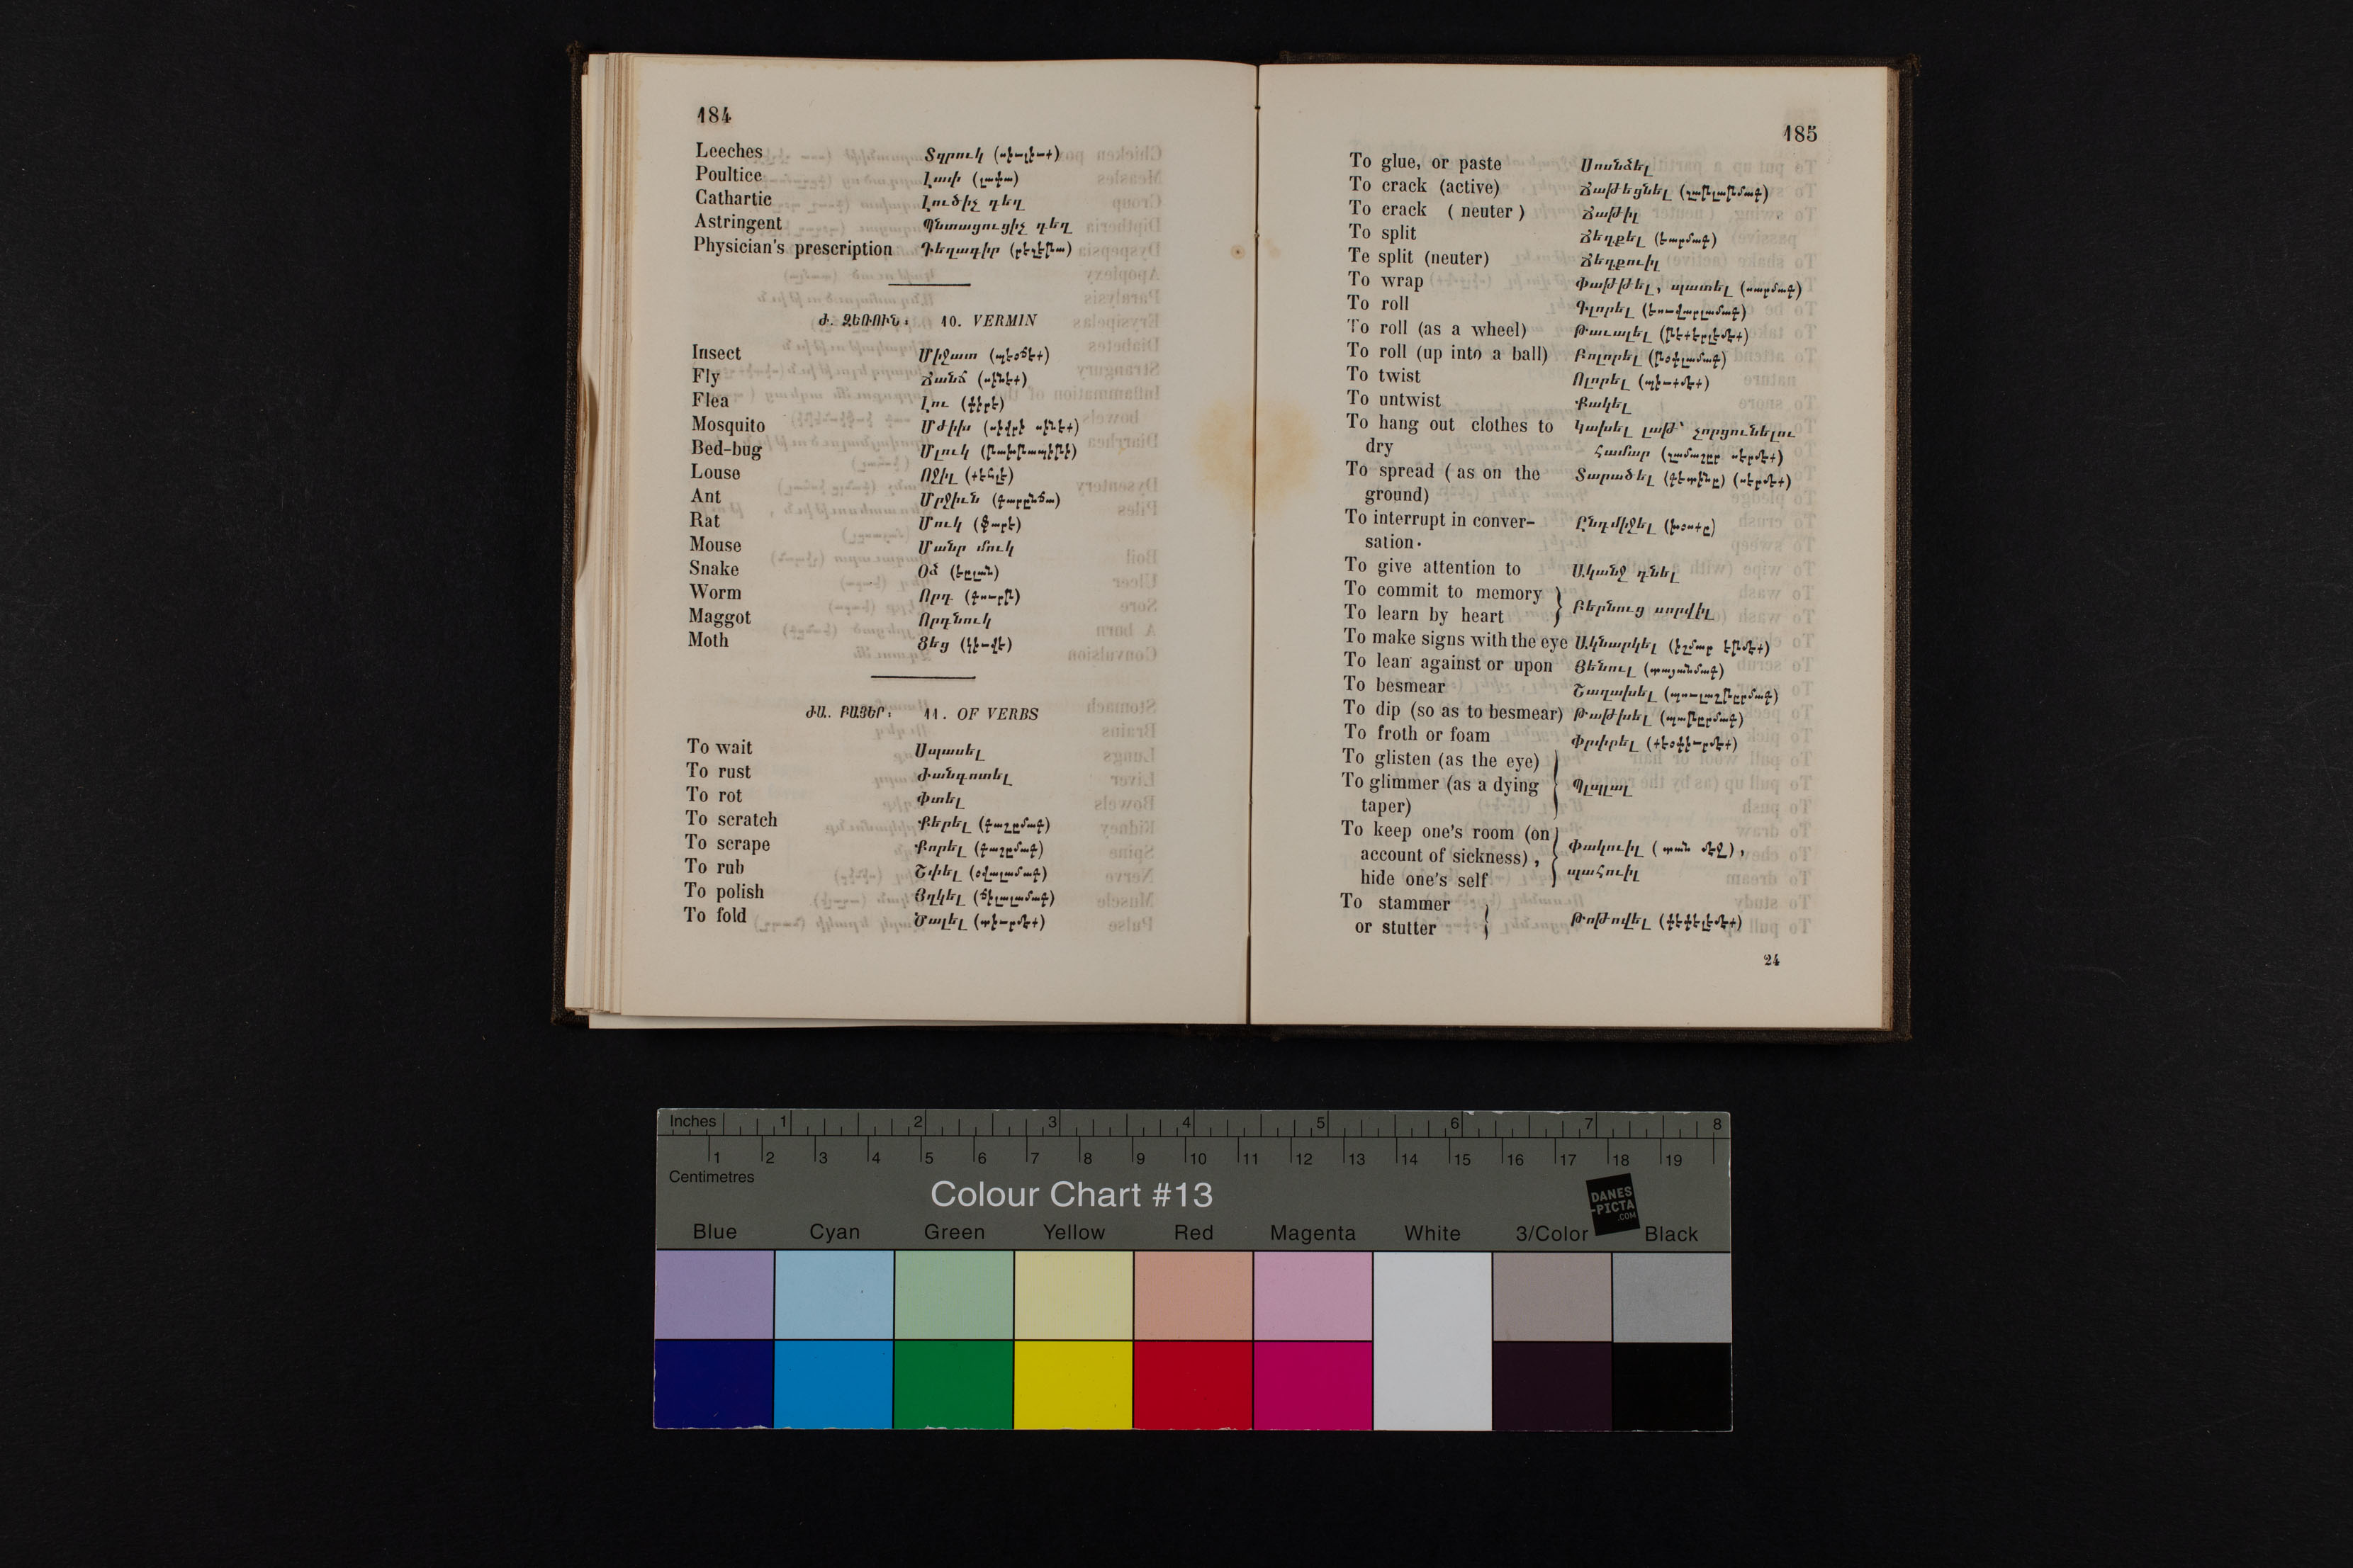 184
Leeches Տզրուկ (սիւլիւք)
Poultice Լափ (լափա)
Cathartic Լուծիչ դեղ
Astringent Պնտացուցիչ դեղ
Physician's prescription Դեղագիր (րէչէթա)
Ժ. ԶԵՌՈՒՆ։ 10. VERMIN
Insect Միջատ (պէօճէք)
Fly Ճանճ (սինէք)
Flea Լու (փիրէ)
Mosquito Մժիխ (սիվրի սինէք)
Bed-bug Մլուկ (թախթապիթի)
Louse Ոջիլ (քէհլէ)
Ant Մրջիւն (գարընճա)
Rat Մուկ (ֆարէ)
Mouse Մանր մուկ
Snake Օձ (եըլան)
Worm Որդ (գուրթ)
Maggot Որդնուկ
Moth Ցեց (կիւվէ)
ԺԱ. ԲԱՅԵՐ։ 11. OF VERBS
To wait Սպասել
To rust Ժանգոտել
To rot Փտել
To scratch Քերել (գաշըմագ)
To scrape Քորել (գաշըմագ)
To rub Շփել (օվալամագ)
To polish Յղկել (ճիլալամագ)
To fold Ծալել (տիւրմէք)
185
To glue, or paste Սոսնձել
To crack (active) Ճաթեցնել (չաթլաթմագ)
To crack ( neuter ) Ճաթիլ
To split Ճեղքել (եարմագ)
Te split (neuter) Ճեղքուիլ
To wrap Փաթթել, պատել (սարմագ)
To roll Գլորել (եուվարլամագ)
To roll (as a wheel) Թաւալել (թէքէրլէմէք)
To roll (up into a ball) Բոլորել (թօփլամագ)
To twist Ոլորել (պիւքմէք)
To untwist Քակել
To hang out clothes to Կախել լաթ՝ չորցունելու
dry համար (չամաշըր սէրմէք)
To spread ( as on the Տարածել (գէտինը) (սէրմէք)
ground)
To interrupt in conver- Ընդմիջել
sation.
To give attention to Ականջ դնել
To commit to memory
To learn by heart } Բերնուց սորվիլ
To make signs with the eye Ակնարկել (իշմար էթմէք)
To lean against or upon Յենուլ (տայանմագ)
To besmear Շաղախել (պուլաշթըրմագ)
To dip (so as to besmear) Թաթխել (պաթըրմագ)
To froth or foam Փրփրել (քէօփիւրմէք)
To glisten (as the eye)
To glimmer (as a dying } Պլպլալ
taper)
To keep one's room (on
account of sickness), { Փակուիլ ( տան մէջ ),
hide one's self պահուիլ
To stammer
or stutter } Թոթովել (փէփէլէմէք)
24
Inches 1 2 3 4 5 6 7 8
1 2 3 4 5 6 7 8 9 10 11 12 13 14 15 16 17 18 19
Centimetres
Colour Chart #13
DANES
-PICTA
.COM
Blue Cyan Green Yellow Red Magenta White 3/Color Black